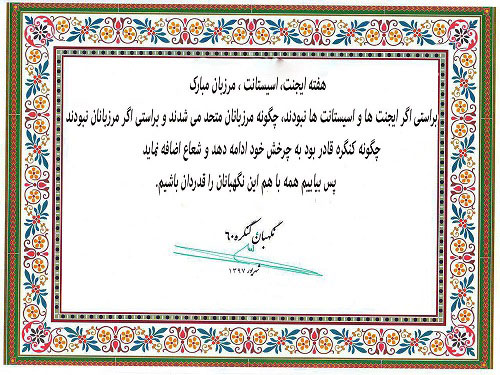 هفته ایجنت، اسیستانت ، مرزبان مبارک
براستی اگر ایجنت ها و اسیستانت ها نبودند، چگونه مرزبانان متحد می شدند و براستی اگر مرزبانان نبودند
چگونه کنگره قادر بود به چرخش خود ادامه دهد و شعاع اضافه نماید
پس بیاییم همه با هم این نگهبانان را قدردان باشیم.
نگهبان کنگره ۶۰
شهریور ۱۳۹۷